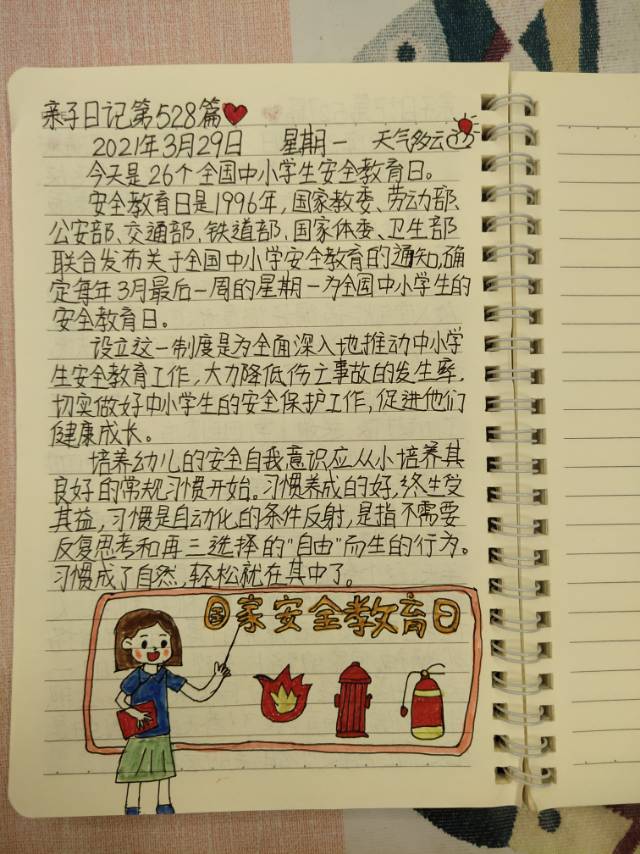 亲子日记第528篇
2021年3月29日 星期一 天气多云
今天是26个全国中小学生安全教育日。
安全教育日是1996年,国家教委、劳动部、
公安部、交通部、铁道部、国家体委、卫生部
联合发布关于全国中小学安全教育的通知,确
定每年3月最后一周的星期一为全国中小学生的
安全教育日。
设立这一制度是为全面深入地推动中小学
生安全教育工作,大力降低伤亡事故的发生率,
切实做好中小学生的安全保护工作,促进他们
健康成长。
培养幼儿的安全自我意识应从小培养其
良好的常规习惯开始。习惯养成的好,终生受
其益,习惯是自动化的条件反射,是指不需要
反复思考和再三选择的"自由"而生的行为。
习惯成了自然,轻松就在其中了。
国家安全教育日